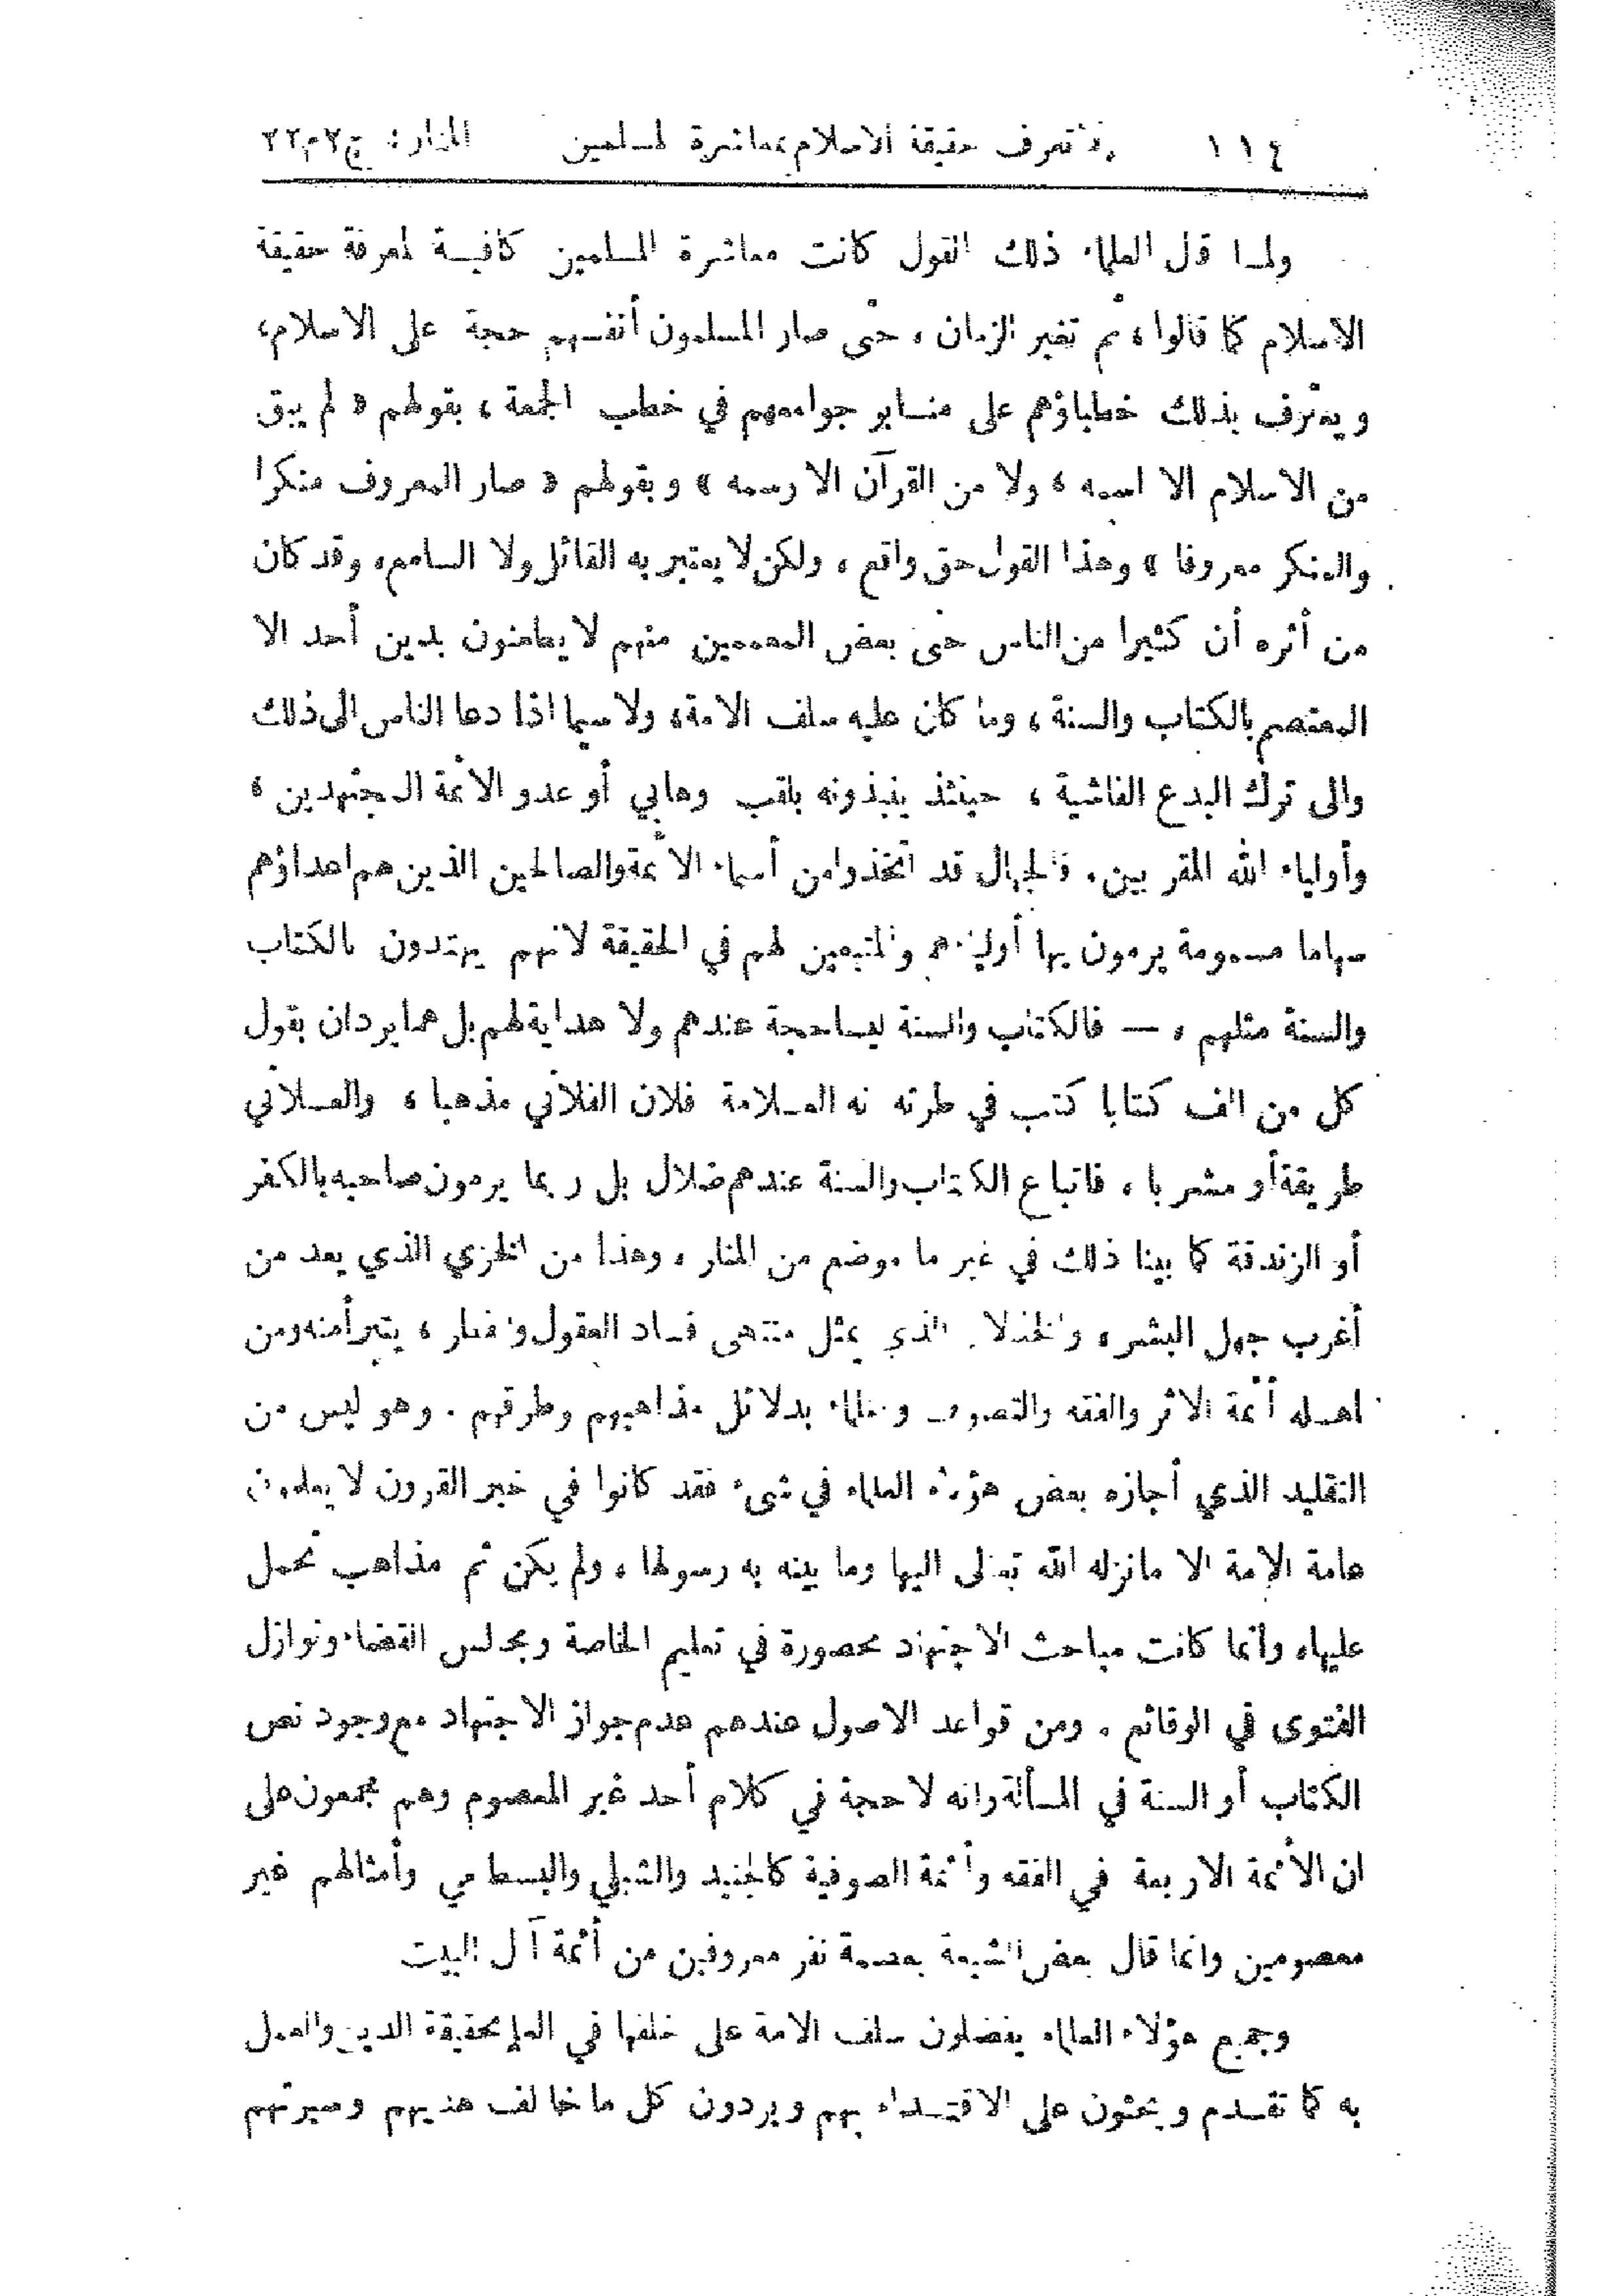 ١١٤ تعرف حقيقة الاسلام بمعاشرة المسلمين المنار: ج٢م٢٢
ولما قال العلماء ذلك القول كانت معاشرة المسلمين كافية لمعرفة حقيقة
الاسلام كما قالوا، ثم تغير الزمان، حتى صار المسلمون أنفسهم حجة على الاسلام،
ويعترف بذلك خطباؤهم على منابر جوامعهم في خطب الجمعة، بقولهم «لم يبق
من الاسلام الا اسمه، ولا من القرآن الا رسمه» وبقولهم «صار المعروف منكرا
والمنكر معروفا» وهذا القول حق واقع، ولكن لا يعتبر به القائل ولا السامع، وقد كان
من أثره أن كثيرا من الناس حتى بعض المعممين منهم لا يطعنون بدين أحد الا
المعتصم بالكتاب والسنة، وما كان عليه سلف الامة، ولا سيما اذا دعا الناس الى ذلك
والى ترك البدع الفاشية، حينئذ ينبذونه بلقب وهابي أو عدو الائمة المجتهدين،
وأولياء الله المقربين. فالجهال قد اتخذوا من أسماء الائمة والصالحين الذين هم اعداؤهم
سهاما مسمومة يرمون بها أولياءهم والمتبعين لهم في الحقيقة لانهم يهتدون بالكتاب
والسنة مثلهم، — فالكتاب والسنة ليسا حجة عندهم ولا هداية لهم بل هما يردان بقول
كل من الف كتابا كتب في طرته انه العلامة فلان الفلاني مذهبا، والعلاني
طريقة أو مشربا، فاتباع الكتاب والسنة عندهم ضلال بل ربما يرمون صاحبه بالكفر
أو الزندقة كما بينا ذلك في غير ما موضع من المنار، وهذا من الخزي الذي يعد من
أغرب جهل البشر، والخذلان الذي يمثل منتهى فساد العقول والفطر، يتبرأ منه ومن
اهله أئمة الاثر والفقه والتصوف وعلماء بدلائل مذاهبهم وطرقهم. وهو ليس من
التقليد الذي أجازه بعض هؤلاء العلماء في شيء فقد كانوا في خير القرون لا يعلمون
عامة الامة الا ما نزله الله تعالى اليها وما بينه به رسولها، ولم يكن ثم مذاهب تحمل
عليها، وانما كانت مباحث الاجتهاد محصورة في تعليم الخاصة ومجلس القضاء ونوازل
الفتوى في الوقائع. ومن قواعد الاصول عندهم عدم جواز الاجتهاد مع وجود نص
الكتاب أو السنة في المسألة وانه لا حجة في كلام أحد غير المعصوم وهم مجمعون على
ان الأئمة الاربعة في الفقه وأئمة الصوفية كالجنيد والشبلي والبسطامي وأمثالهم غير
معصومين وانما قال بعض الشيعة بعصمة نفر معروفين من أئمة آل البيت
وجميع هؤلاء العلماء يفضلون سلف الامة على خلفها في العلم بحقيقة الدين والعمل
به كما تقدم ويحثون على الاقتداء بهم ويردون كل ما خالف هديهم وسيرتهم